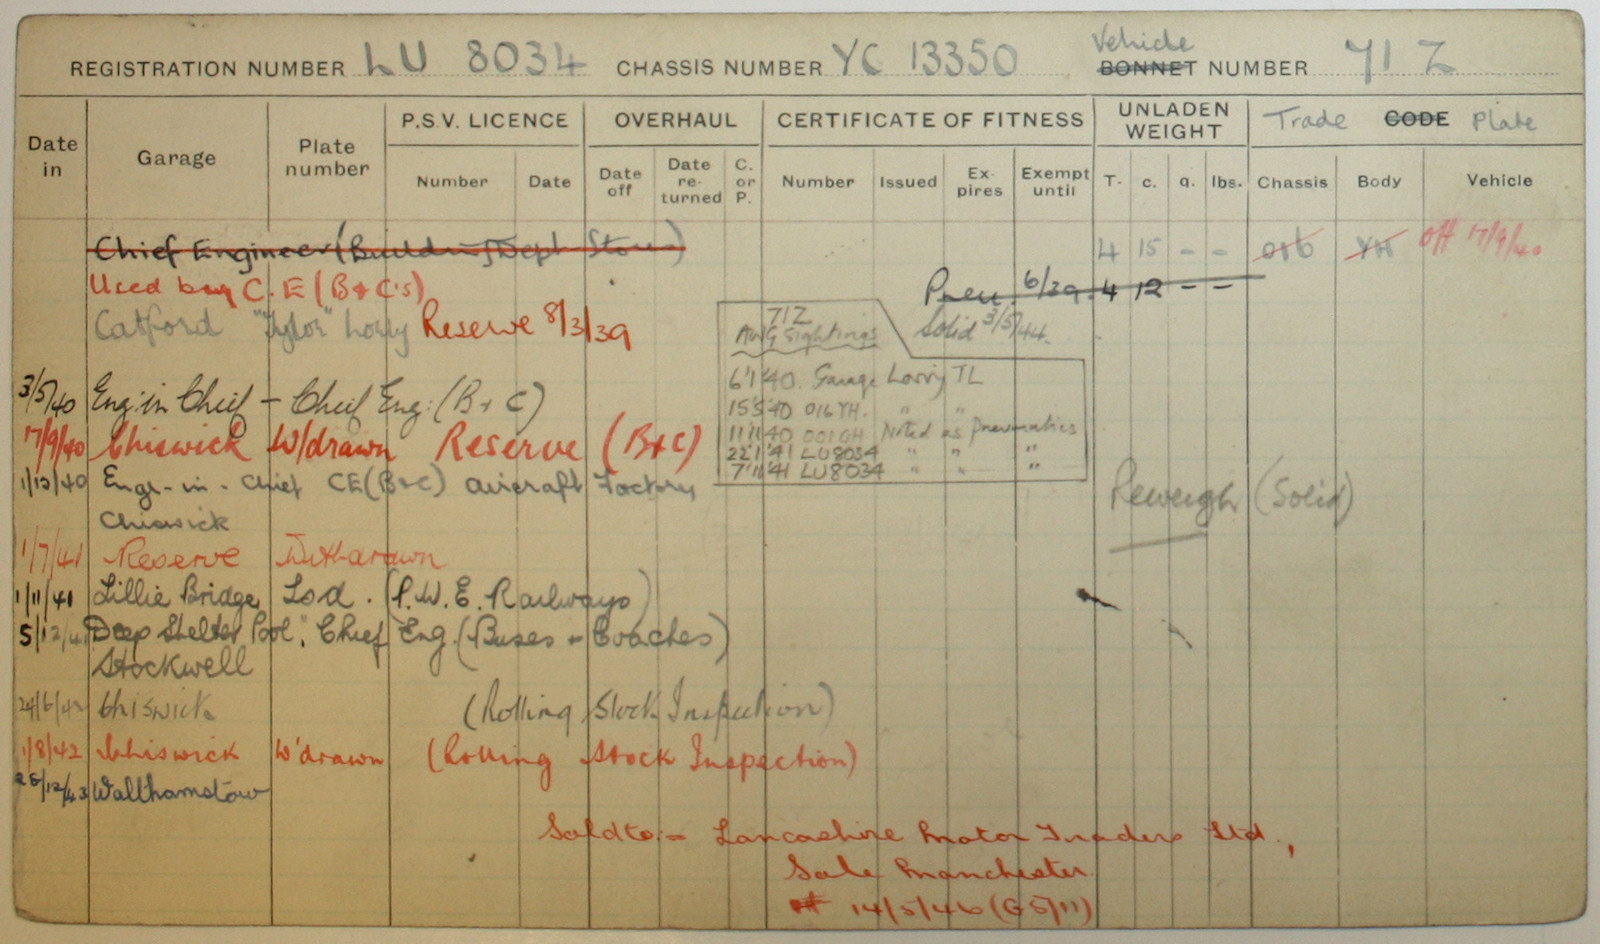 REGISTRATION NUMBER LU 8034 CHASSIS NUMBER YC 13350 Vehicle BONNET NUMBER 71 Z
Date in Garage Plate number P.S.V. LICENCE OVERHAUL CERTIFICATE OF FITNESS UNLADEN WEIGHT Trade CODE Plate
Number Date Date off Date re-turned C. or P. Number Issued Ex-pires Exempt until T. c. q. lbs. Chassis Body Vehicle
Chief Engineer (Building Dept Store) 4 15 - - 016 YH off 17/9/40
Used by C.E (B+C's) Pneu. 6/39. 4 12 - -
Catford "Tylor" Lorry Reserve 8/3/39 Solid 3/5/44.
71Z
AWG Sightings
6'1'40. Garage Lorry TL
15'5'40 016YH. " "
11'11'40 001GH Noted as pneumatics
22'1'41 LU8034 " " "
7'11'41 LU8034 " " "
3/5/40 Eng: in Chief - Chief Eng: (B + C)
17/9/40 Chiswick W/drawn Reserve (B+C)
1/12/40 Engr-in-Chief CE(B+C) aircraft Factory
Chiswick
Reweigh (Solid)
1/7/41 Reserve Withdrawn
1/11/41 Lillie Bridge Lsd. (P.W.E. Railways)
5/12/41 Deep Shelter Pool, Chief Eng. (Buses + Coaches)
Stockwell
24/6/42 Chiswick (Rolling Stock Inspection)
1/8/42 Chiswick W'drawn (Rolling Stock Inspection)
28/12/43 Walthamstow
Sold to:- Lancashire Motor Traders Ltd.,
Sale Manchester
14/5/46 (G5/11)